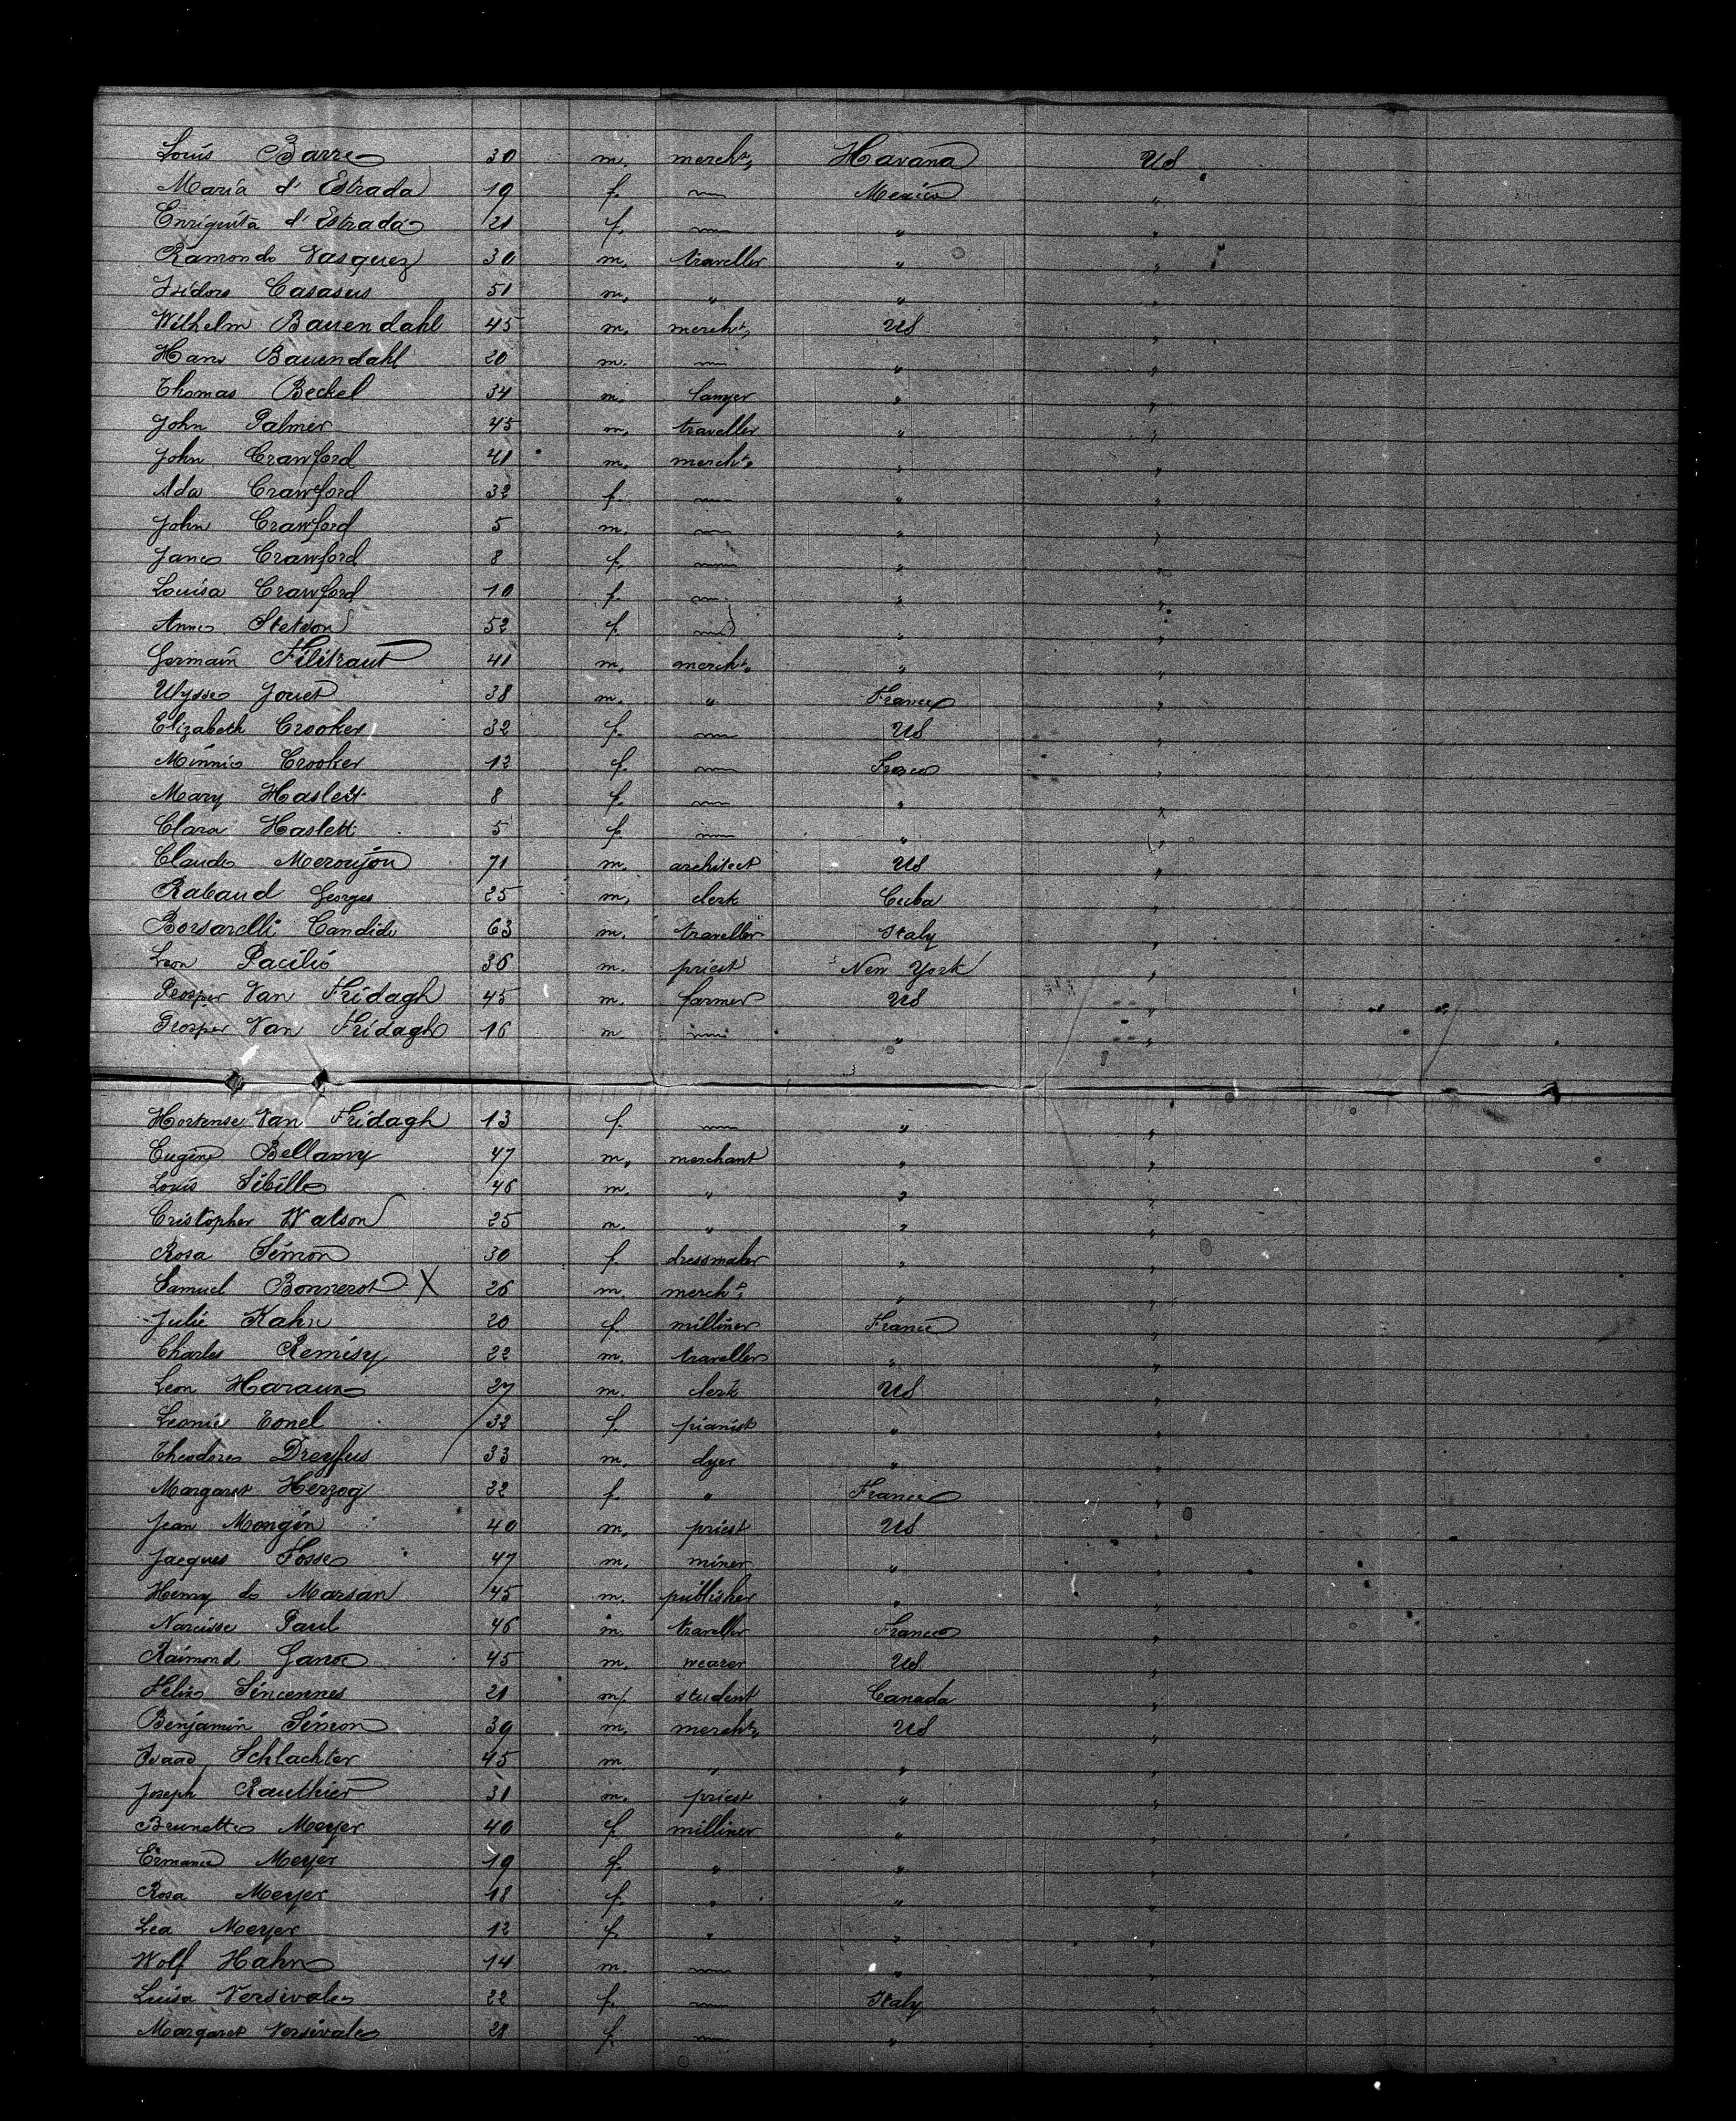 Louis Barre 30 m. mercht. Havana US
Maria d'Estrada 19 f. — Mexico "
Enriquita d'Estrada 21 f. — " "
Ramondo Vasquez 30 m. traveller " "
Isidore Casasus 51 m. " " "
Wilhelm Bauendahl 45 m. mercht. US "
Hans Bauendahl 20 m. — " "
Thomas Beckel 34 m. lawyer " "
John Palmer 45 m. traveller " "
John Crawford 41 m. mercht. " "
Ada Crawford 32 f. — " "
John Crawford 5 m. — " "
Jane Crawford 8 f. — " "
Louisa Crawford 10 f. — " "
Anne Stetson 52 f. — " "
Germain Filitraut 41 m. mercht. " "
Ulysse Jouet 38 m. " France "
Elizabeth Crooker 32 f. — US "
Minnie Crooker 12 f. — "
Mary Haslett 8 f. — " "
Clara Haslett 5 f. — " "
Claude Meroujon 71 m. architect US "
Rabaud Georges 25 m. clerk Cuba "
Borsarelli Candide 63 m. traveller Italy "
Leon Pacilio 36 m. priest New York "
Prosper Van Fridagh 45 m. farmer US "
Prosper Van Fridagh 16 m — " "
Hortense Van Fridagh 13 f. — " "
Eugène Bellamy 47 m. merchant " "
Louis Sibille 46 m. " " "
Cristopher Watson 25 m. " " "
Rosa Simon 30 f. dressmaker " "
Samuel Bonnerot X 26 m. mercht. " "
Julie Kahn 20 f. milliner France "
Charles Remisy 22 m. traveller " "
Leon Haraux 27 m. clerk US "
Leonie Tonel 32 f. pianist " "
Theodore Dreyfus 33 m. dyer " "
Margaret Herzog 32 f. " France "
Jean Mongin 40 m. priest US "
Jacques Fosse 47 m. miner " "
Henry de Marsan 45 m. publisher " "
Narcisse Paul 46 m. traveller France "
Raimond Ganoe 45 m. wearer US "
Felix Sincennes 21 m. student Canada "
Benjamin Simon 39 m. mercht. US "
Isaac Schlachter 45 m " " "
Joseph Rauthier 31 m. priest " "
Brunette Meyer 40 f. milliner " "
Ermance Meyer 19 f. " " "
Rosa Meyer 18 f. " " "
Lea Meyer 12 f. " " "
Wolf Hahn 14 m. — " "
Luisa Versivale 22 f. — Italy "
Margaret Versivale 28 f. — " "